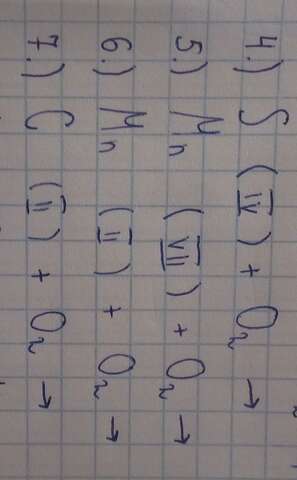 4.) S (IV) + O₂ →
5.) Mn (VII) + O₂ →
6.) Mn (II) + O₂ →
7.) C (II) + O₂ →